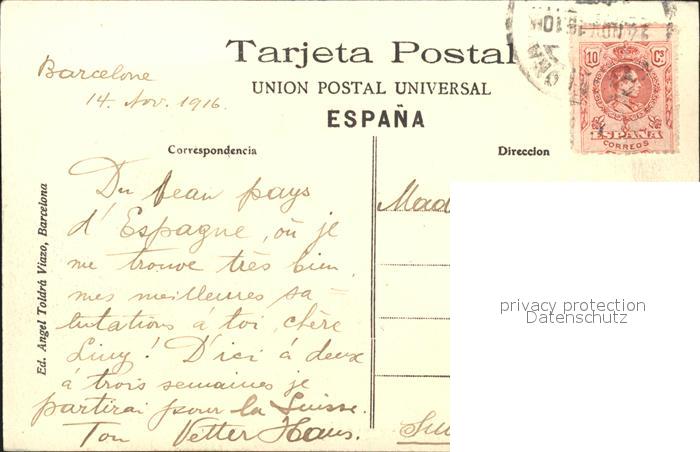 Tarjeta Postal
UNION POSTAL UNIVERSAL
ESPAÑA
10 Cs
ESPAÑA
CORREOS
Barcelone
14. Nov. 1916.
Correspondencia
Direccion
Du beau pays
d'Espagne, où je
me trouve très bien
mes meilleures sa-
lutations à toi, chère
Liny! D'ici à deux
à trois semaines je
partirai pour la Suisse.
Ton Vetter Hans.
Mad
Ed. Angel Toldrá Viazo, Barcelona
privacy protection
Datenschutz